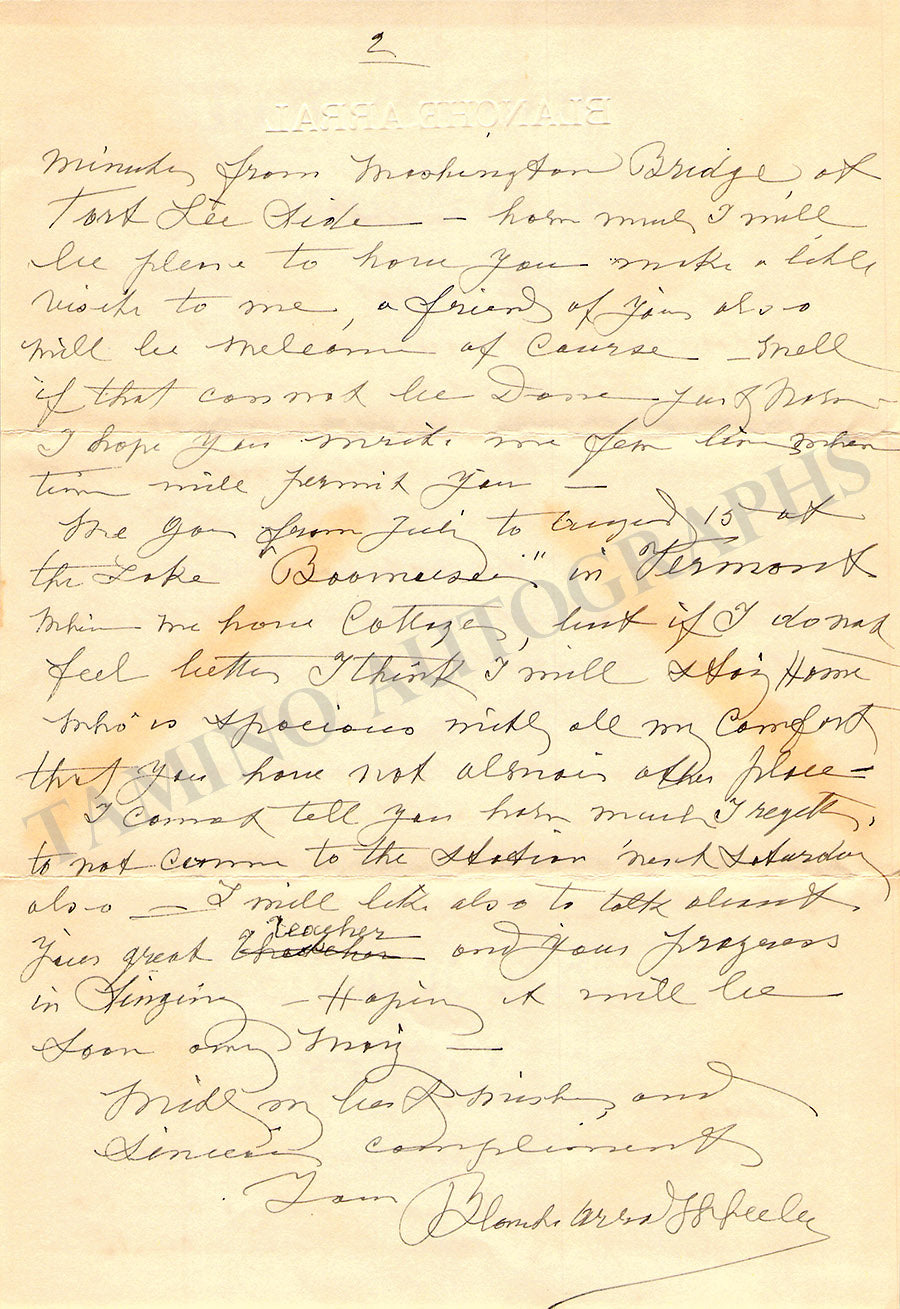 2
BLANCHE ARRAL
minutes from Washington Bridge at
Fort Lee Side — how much I will
be please to have you make a little
visite to me, a friend of you also
will be welcome of course — Well
if that can not be Done just Now —
I hope you write me few line when
time will permit you —
We go from July to 15 at
the Lake "Boomoseen" in Vermont
When we have Cottage, but if I do not
feel better I think I will stay Home
who is spacious with all my Comfort
that you have not always other place —
I cannot tell you how much I regett,
to not come to the station next Saturday
also — I will like also to talk about
your great Teacher and your progress
in Singing — Hoping it will be
soon any way —
With my best wishes, and
sincere compliment
I am Blanche Arral Wheeler
TAMINO AUTOGRAPHS